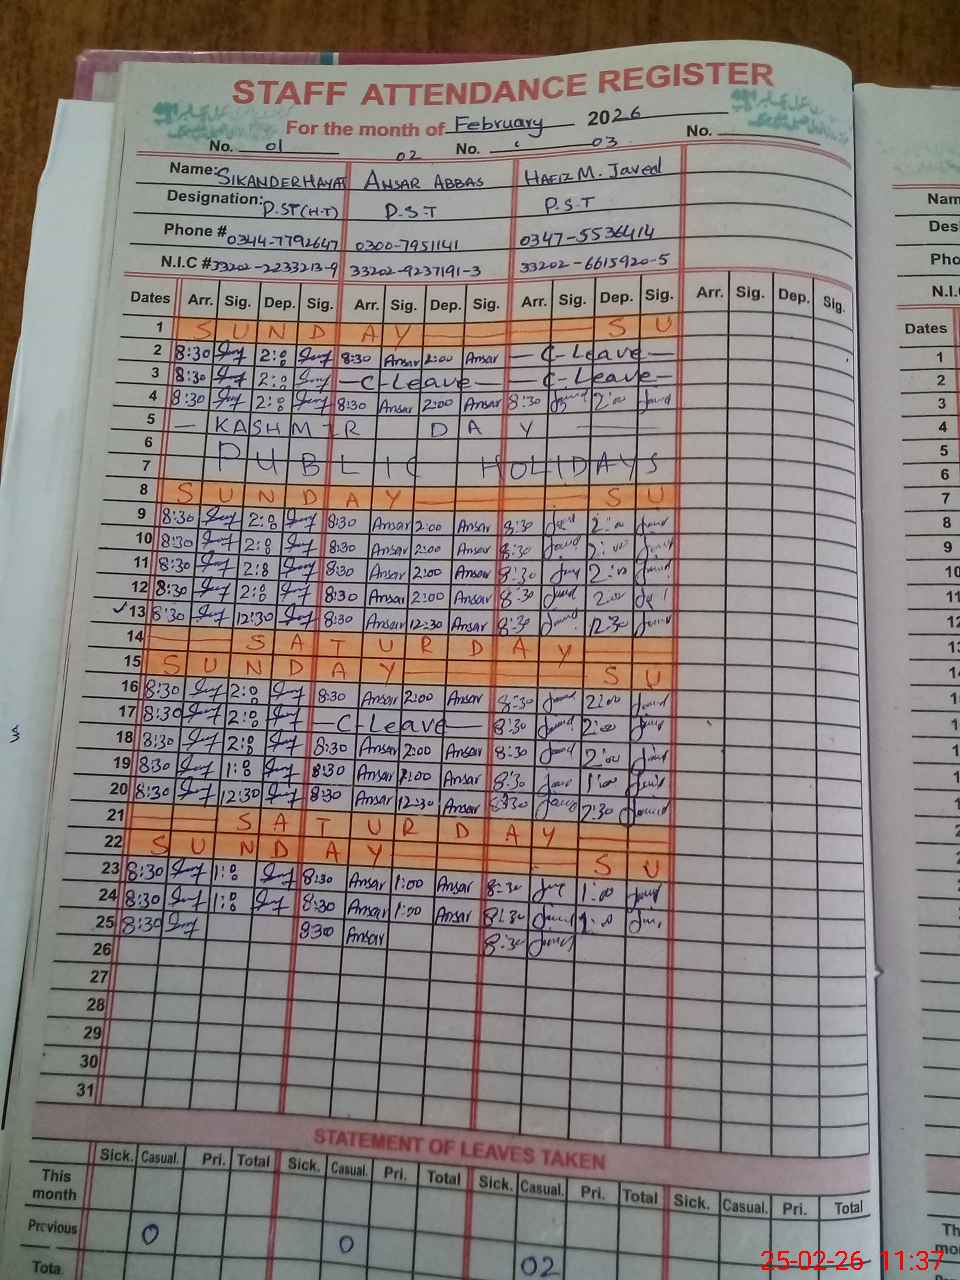 STAFF ATTENDANCE REGISTER
For the month of February 2026
No. 01 02 No. 03 No.
Name: SIKANDER HAYAT ANSAR ABBAS HAFIZ M. Javed
Designation: P.ST (H.T) P.S.T P.S.T
Phone # 0344-7792647 0300-7951141 0347-5536414
N.I.C # 33202-2233213-9 33202-9237191-3 33202-6615920-5
Dates Arr. Sig. Dep. Sig. Arr. Sig. Dep. Sig. Arr. Sig. Dep. Sig. Arr. Sig. Dep. Sig.
1 SUNDAY SU
2 8:30 2:00 8:30 Ansar 2:00 Ansar — C-Leave —
3 8:30 2:00 — C-Leave — — C-Leave —
4 8:30 2:00 8:30 Ansar 2:00 Ansar 8:30 2:00
5 — KASHMIR DAY —
6
7 PUBLIC HOLIDAYS
8 SUNDAY SU
9 8:30 2:00 8:30 Ansar 2:00 Ansar 8:30 2:00
10 8:30 2:00 8:30 Ansar 2:00 Ansar 8:30 2:00
11 8:30 2:00 8:30 Ansar 2:00 Ansar 8:30 2:00
12 8:30 2:00 8:30 Ansar 2:00 Ansar 8:30 2:00
✓13 8:30 12:30 8:30 Ansar 12:30 Ansar 8:30 12:30
14 SATURDAY
15 SUNDAY SU
16 8:30 2:00 8:30 Ansar 2:00 Ansar 8:30 2:00
17 8:30 2:00 — C-Leave — 8:30 2:00
18 8:30 2:00 8:30 Ansar 2:00 Ansar 8:30 2:00
19 8:30 1:00 8:30 Ansar 1:00 Ansar 8:30 1:00
20 8:30 12:30 8:30 Ansar 12:30 Ansar 8:30 12:30
21 SATURDAY
22 SUNDAY SU
23 8:30 1:00 8:30 Ansar 1:00 Ansar 8:30 1:00
24 8:30 1:00 8:30 Ansar 1:00 Ansar 8:30 1:00
25 8:30 8:30 Ansar 8:30
26
27
28
29
30
31
STATEMENT OF LEAVES TAKEN
Sick. Casual. Pri. Total Sick. Casual. Pri. Total Sick. Casual. Pri. Total Sick. Casual. Pri. Total
This month
Previous 0 0 02
Total
25-02-26 11:37
Dates
1
2
3
4
5
6
7
8
9
10
11
12